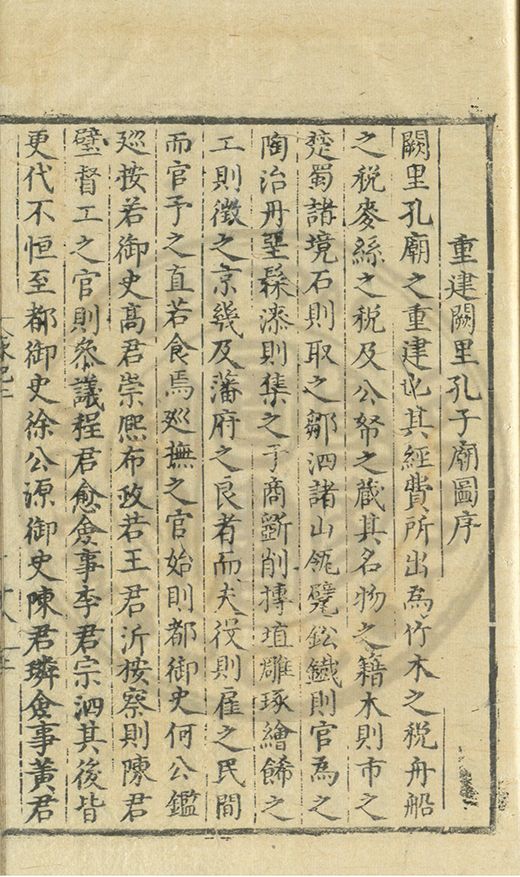 重建闕里孔子廟圖序
闕里孔廟之重建也其經費所出爲竹木之税舟船
之税麥絲之税及公帑之藏其名物之籍木則市之
楚蜀諸境石則取之鄒泗諸山瓴甓鈆鐵則官爲之
陶冶丹堊髹漆則集之于商斵削摶埴雕琢繪餙之
工則徵之京畿及藩府之良者而夫役則雇之民間
而官予之直若食焉廵撫之官始則都御史何公鑑
廵按若御史髙君崇熈布政若王君沂按察則陳君
璧督工之官則叅議程君愈僉事李君宗泗其後皆
更代不恒至都御史徐公源御史陳君璘僉事黄君